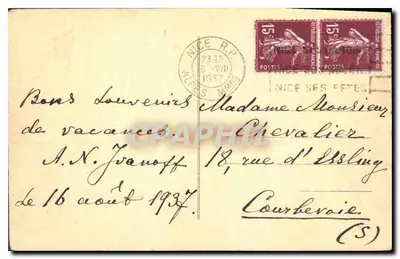 NICE R.P.
ALPES MMES
15c
15c
POSTES
POSTES
NICE SES FETES
Bons Souvenirs
de vacances.
A. N. Ivanoff
Le 16 août 1937.
Madame Monsieur
Chevalier
18, rue d'Essling
Courbevoie
(S)
CPAPHIL